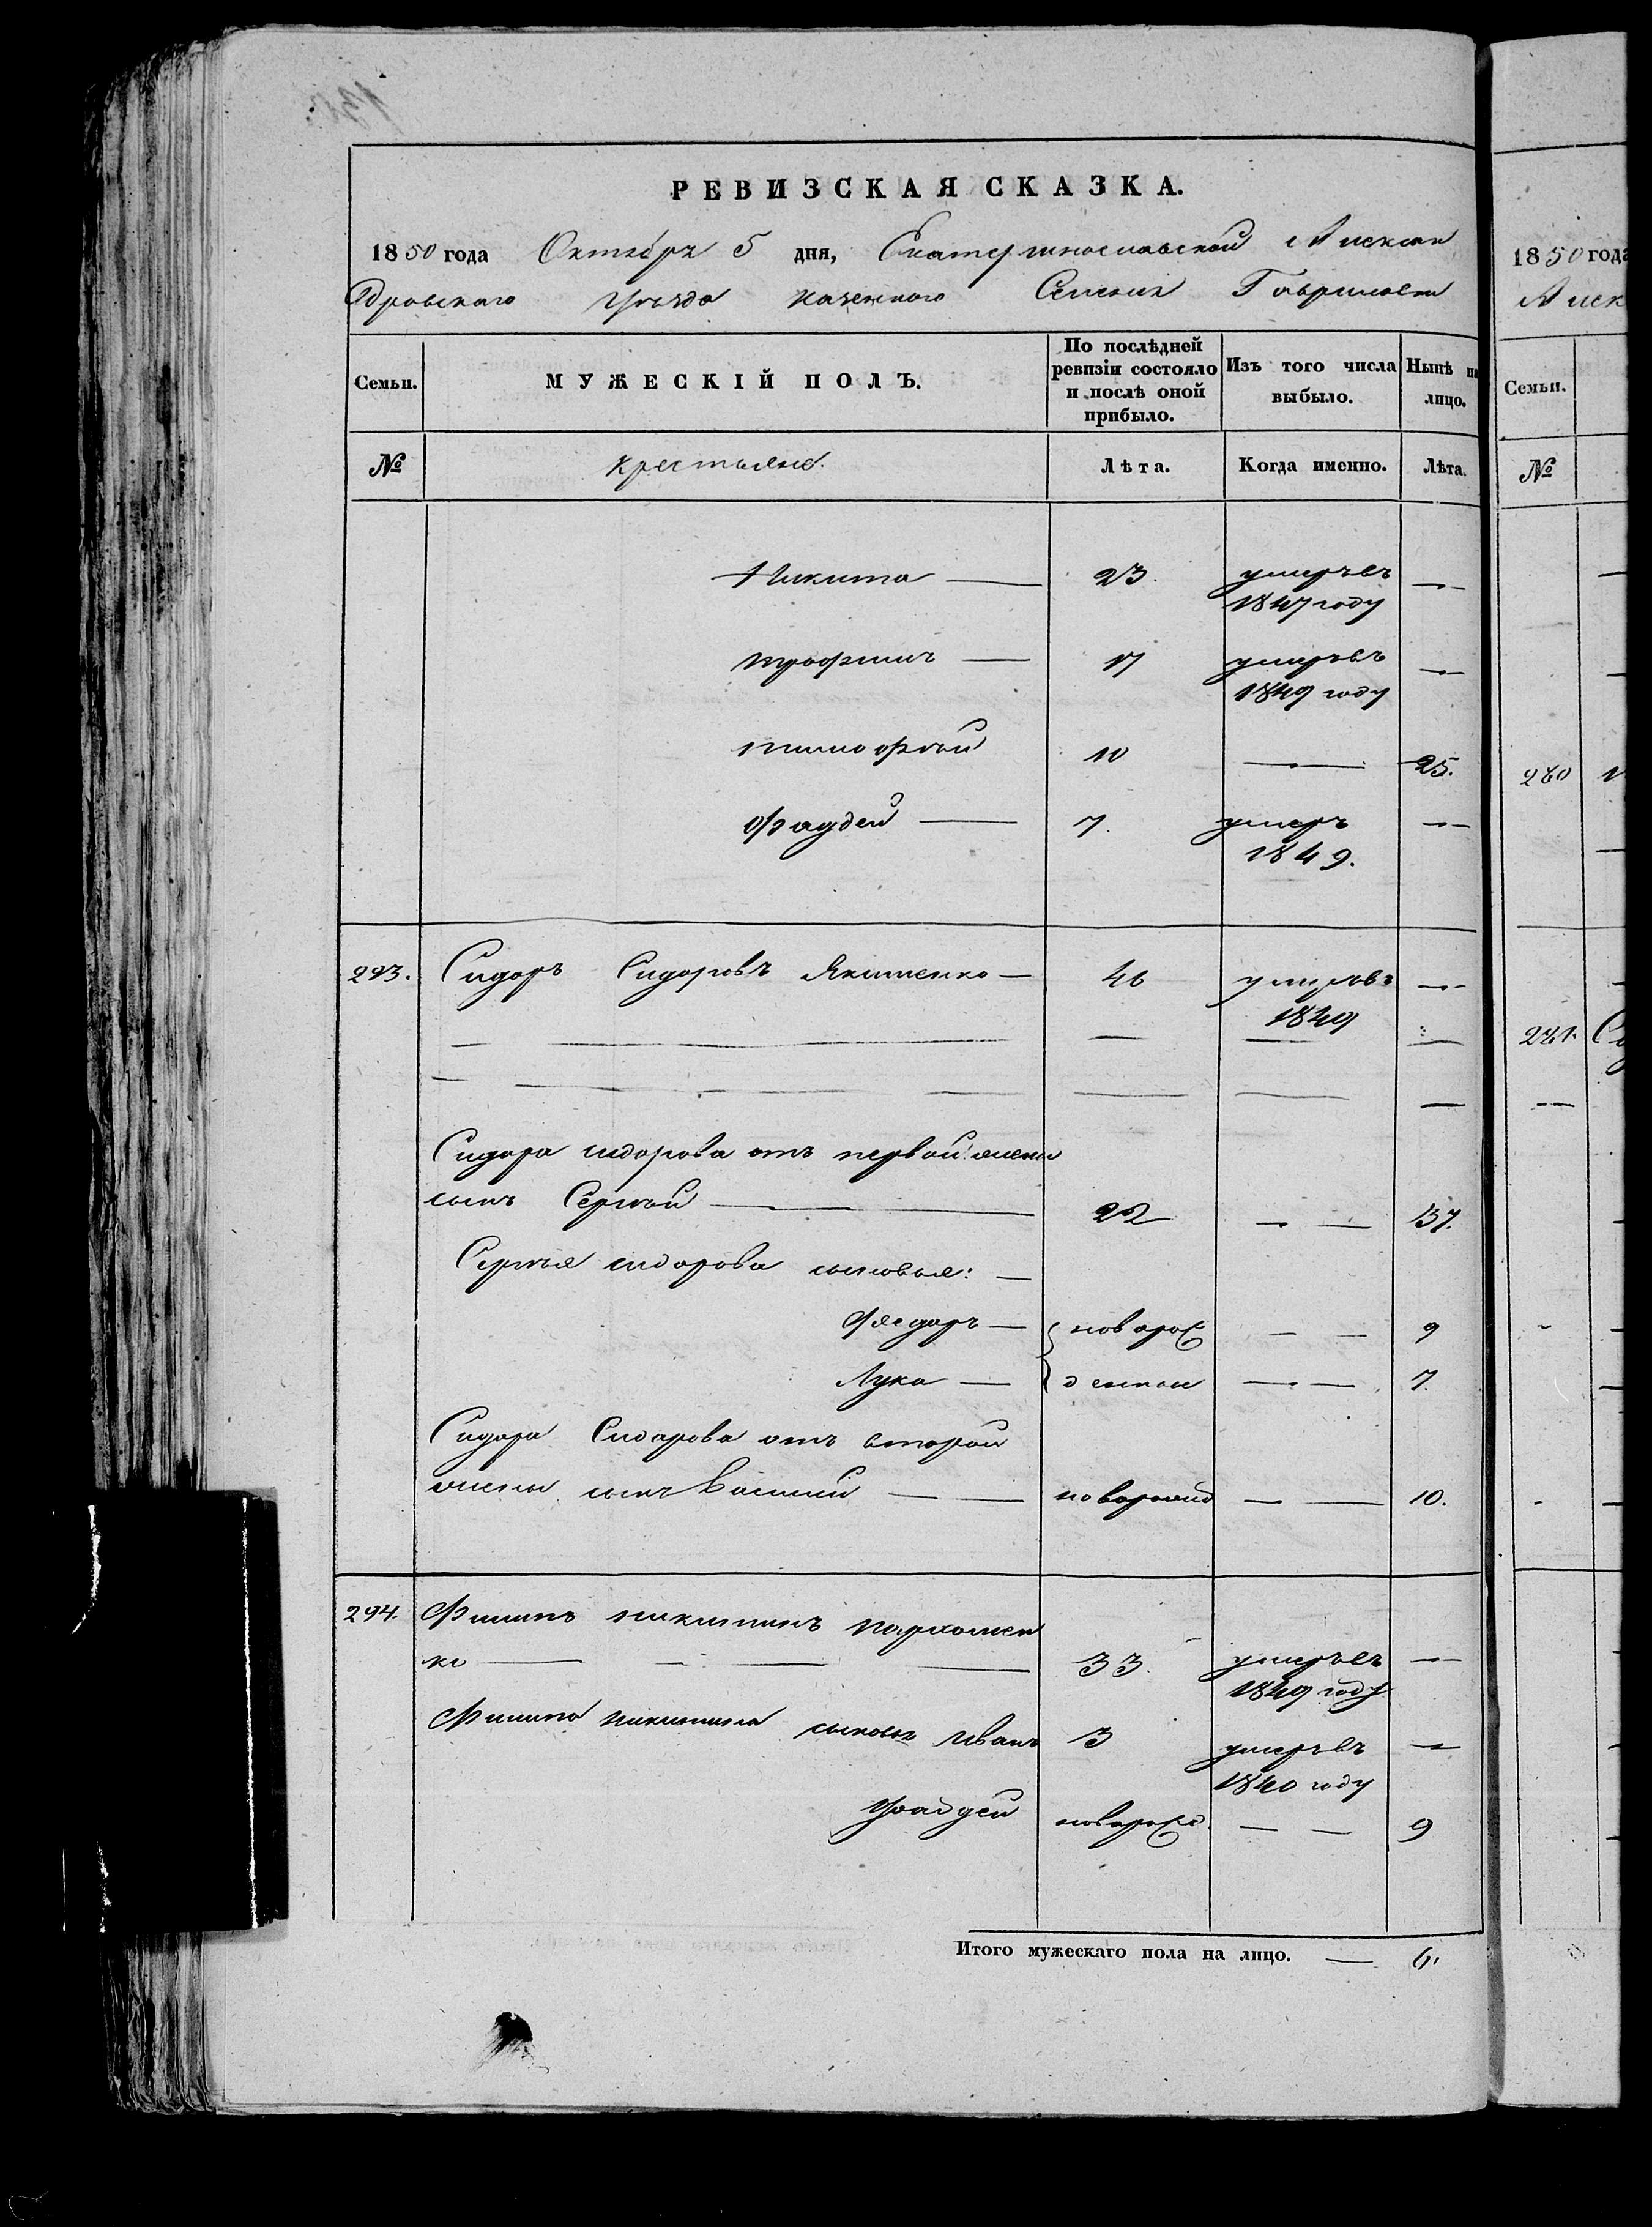 РЕВИЗСКАЯ СКАЗКА.
1850 года Октября 5 дня, Екатеринославской Алексан
дровскаго уѣзда казеннаго Селенія Гавриловки
Семьи.
МУЖЕСКІЙ ПОЛЪ.
По послѣдней ревизіи состояло и послѣ оной прибыло.
Изъ того числа выбыло.
Нынѣ на лицо.
№ крестьяне. Лѣта. Когда именно. Лѣта.
Никита — 23. умеръ въ —
1847 году
трофимъ — 17 умеръ въ —
1849 году
тимофѣй 10 — 25.
Фаддей — 7. умеръ —
1849.
293. Сидоръ Сидоровъ Якименко — 46 умеръ въ —
1849
Сидора сидорова отъ первой жены
сынъ Сергѣй — 22 — — 37.
Сергѣя сидорова сыновья: —
Федоръ — новорож — — 9
Лука — денны — — 7.
Сидора Сидорова отъ второй
жены сынъ Василий — новорожд — — 10.
294. Филипъ никитинъ пархомен
ко — 33. умеръ въ —
1849 году
Филипа никитина сыновья Иванъ 3 умеръ въ —
1840 году
Фаддей новорожд. — — 9
Итого мужескаго пола на лицо. — 6.
1850 года
Алек
Семьи.
№
280
281.